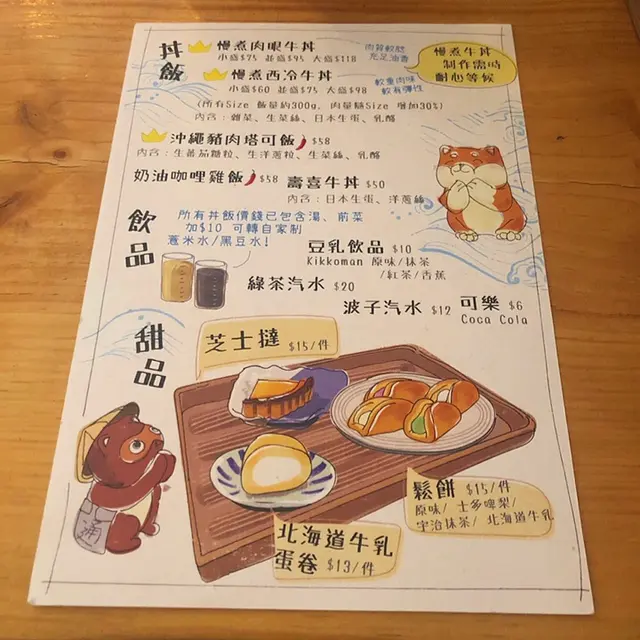 丼飯
慢煮肉眼牛丼
小盛$75 並盛$95 大盛$118
肉質軟腍
充足油香
慢煮西冷牛丼
小盛$60 並盛$75 大盛$98
較重肉味
較有彈性
慢煮牛丼
制作需時
耐心等候
(所有Size 飯量約300g, 肉量隨Size 增加30%)
內含：雜菜、生菜絲、日本生蛋、乳酪
沖繩豬肉塔可飯 $58
內含：生蕃茄糖粒、生洋蔥粒、生菜絲、乳酪
奶油咖哩雞飯 $58
壽喜牛丼 $50
內含：日本生蛋、洋蔥絲
飲品
所有丼飯價錢已包含湯、前菜
加$10 可轉自家制
薏米水/黑豆水!
豆乳飲品 $10
Kikkoman 原味/抹茶
/紅茶/香蕉
綠茶汽水 $20
波子汽水 $12
可樂 $6
Coca Cola
甜品
芝士撻 $15/件
鬆餅 $15/件
原味/ 士多啤梨/
宇治抹茶/ 北海道牛乳
北海道牛乳
蛋卷 $13/件
通